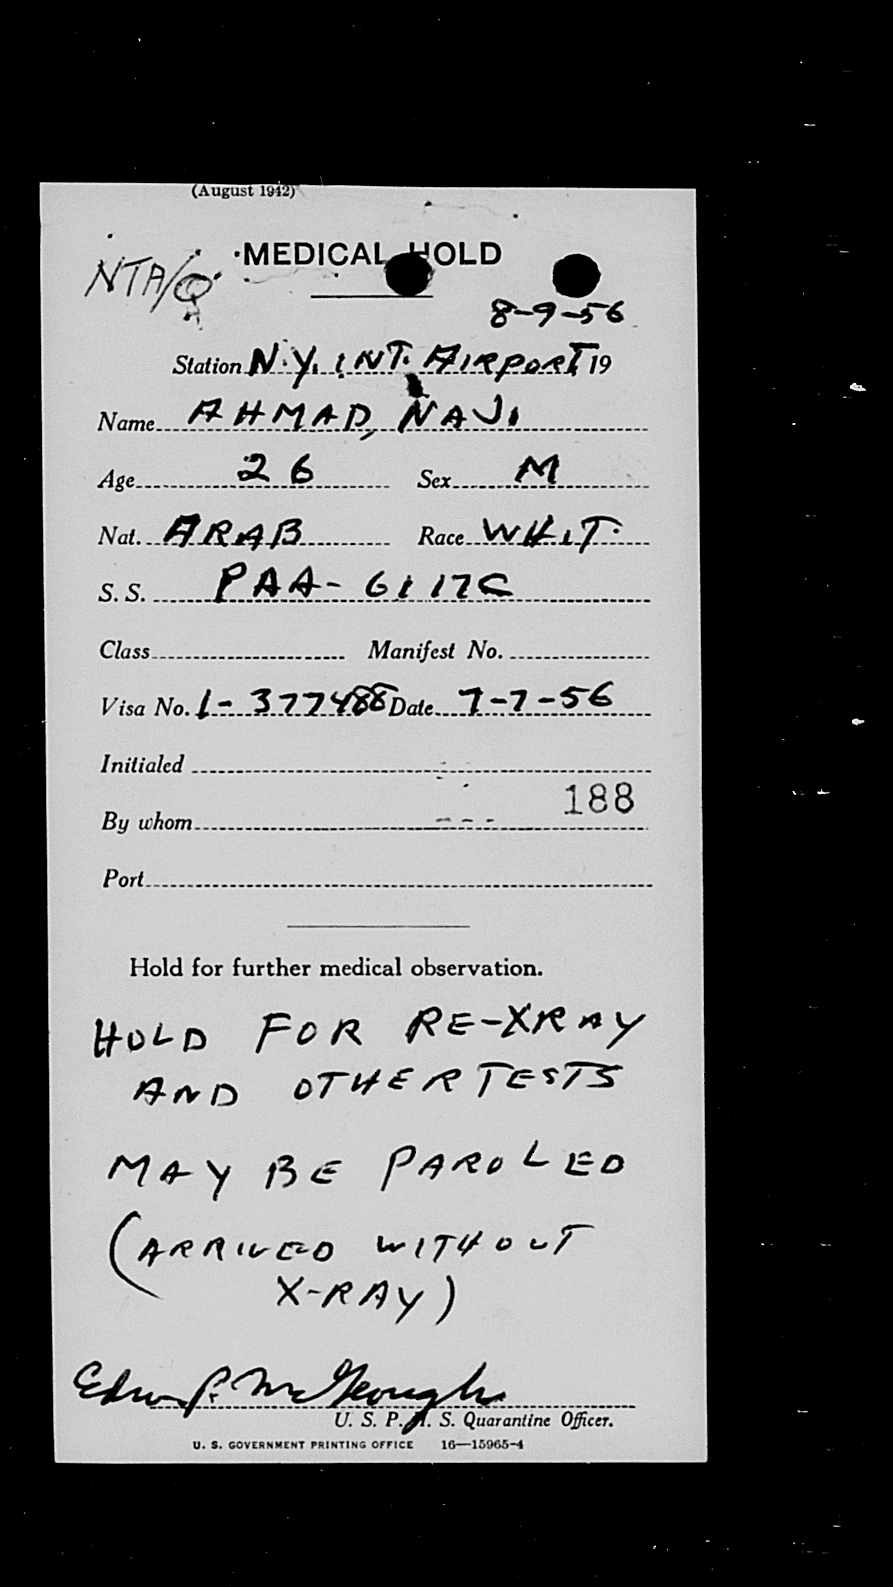 (August 1942)
MEDICAL HOLD
NTA/Q
8-9-56
Station N.Y. INT. AIRPORT 19
Name AHMAD, NAJI
Age 26 Sex M
Nat. ARAB Race WHIT.
S. S. PAA- 61 17C
Class Manifest No.
Visa No. 1- 377488 Date 7-7-56
Initialed
188
By whom
Port
Hold for further medical observation.
HOLD FOR RE-XRAY
AND OTHER TESTS
MAY BE PAROLED
(ARRIVED WITHOUT
X-RAY)
U. S. P. H. S. Quarantine Officer.
U. S. GOVERNMENT PRINTING OFFICE 16—15965-4